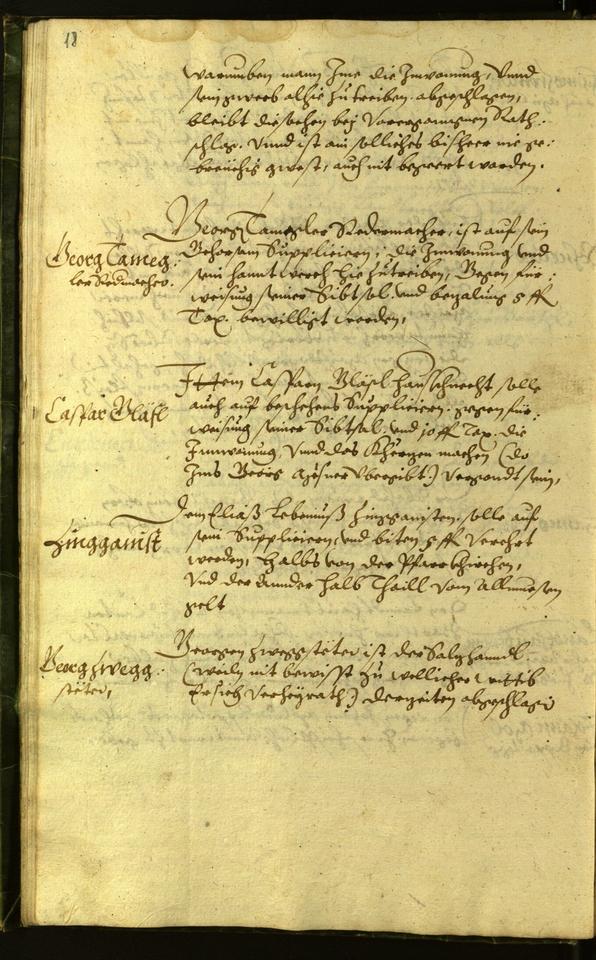 18
warumben mann Ime die Inwonung, Vnnd
sein gwerb alhie zu treiben abgeschlagen,
bleibt die sachen bej Vorergangnen Rath:
schlag. Vnnd ist ain solliches bisheer nie ge:
breuchig gwest, auch nit begeert warden.
Georg Tameg:
ler Redmacher.
Georg Tamegler Redermacher, ist auf sein
gehorsam Suppliciern, die Inwonung vnd
sein hanntwerch hie zu treiben, gegen für:
weisung seiner Sibtsal vnd bezalung 5 ff
Tax. bewilligt worden,
Caspar Bläsl
Item Casparn Bläsl haussknecht solle
auch auf beschehens Suppliciern. gegen für:
weisung seiner Sibtsal vnd 10 ff Tax. die
Innwonung Vnnd das Kherzen machen (do
Ims Georg übergibt) vergondt sein,
Zinggänist
Dem Eliaß Lebenuß Zinggenisten. solle auf
sein Suppliciern, vnd biten 5 ff Verehrt
werden, halbs von der Pfarrkhirchen,
Vnd der annder halb Thaill vom Allmuesen
gelt
Georg Zwegg:
stëter,
Georgen Zweggstëter ist der Salzhanndl
(weiln nit bewisst zu wellicher
Er sich Verheyrath) derzeiten abgeschlagen